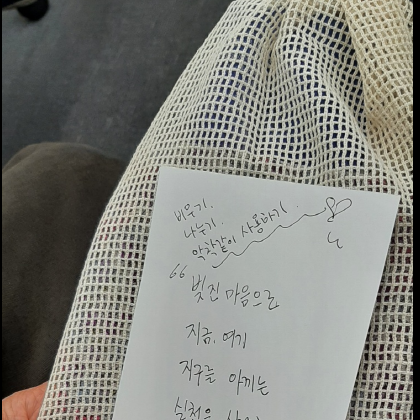 비우기.
나누기.
악착같이 사용하기.
“ 빚진 마음으로
지금, 여기
지구를 아끼는
실천을